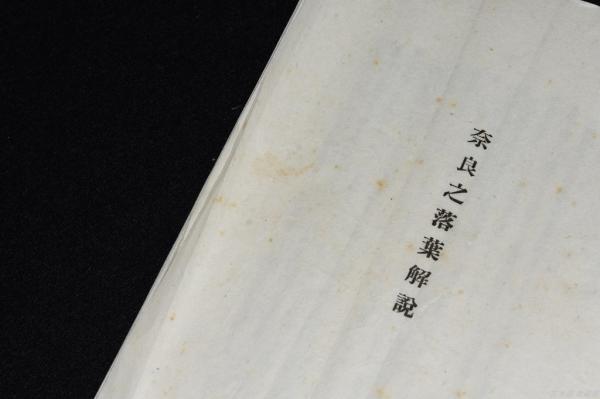 奈良之落葉解說